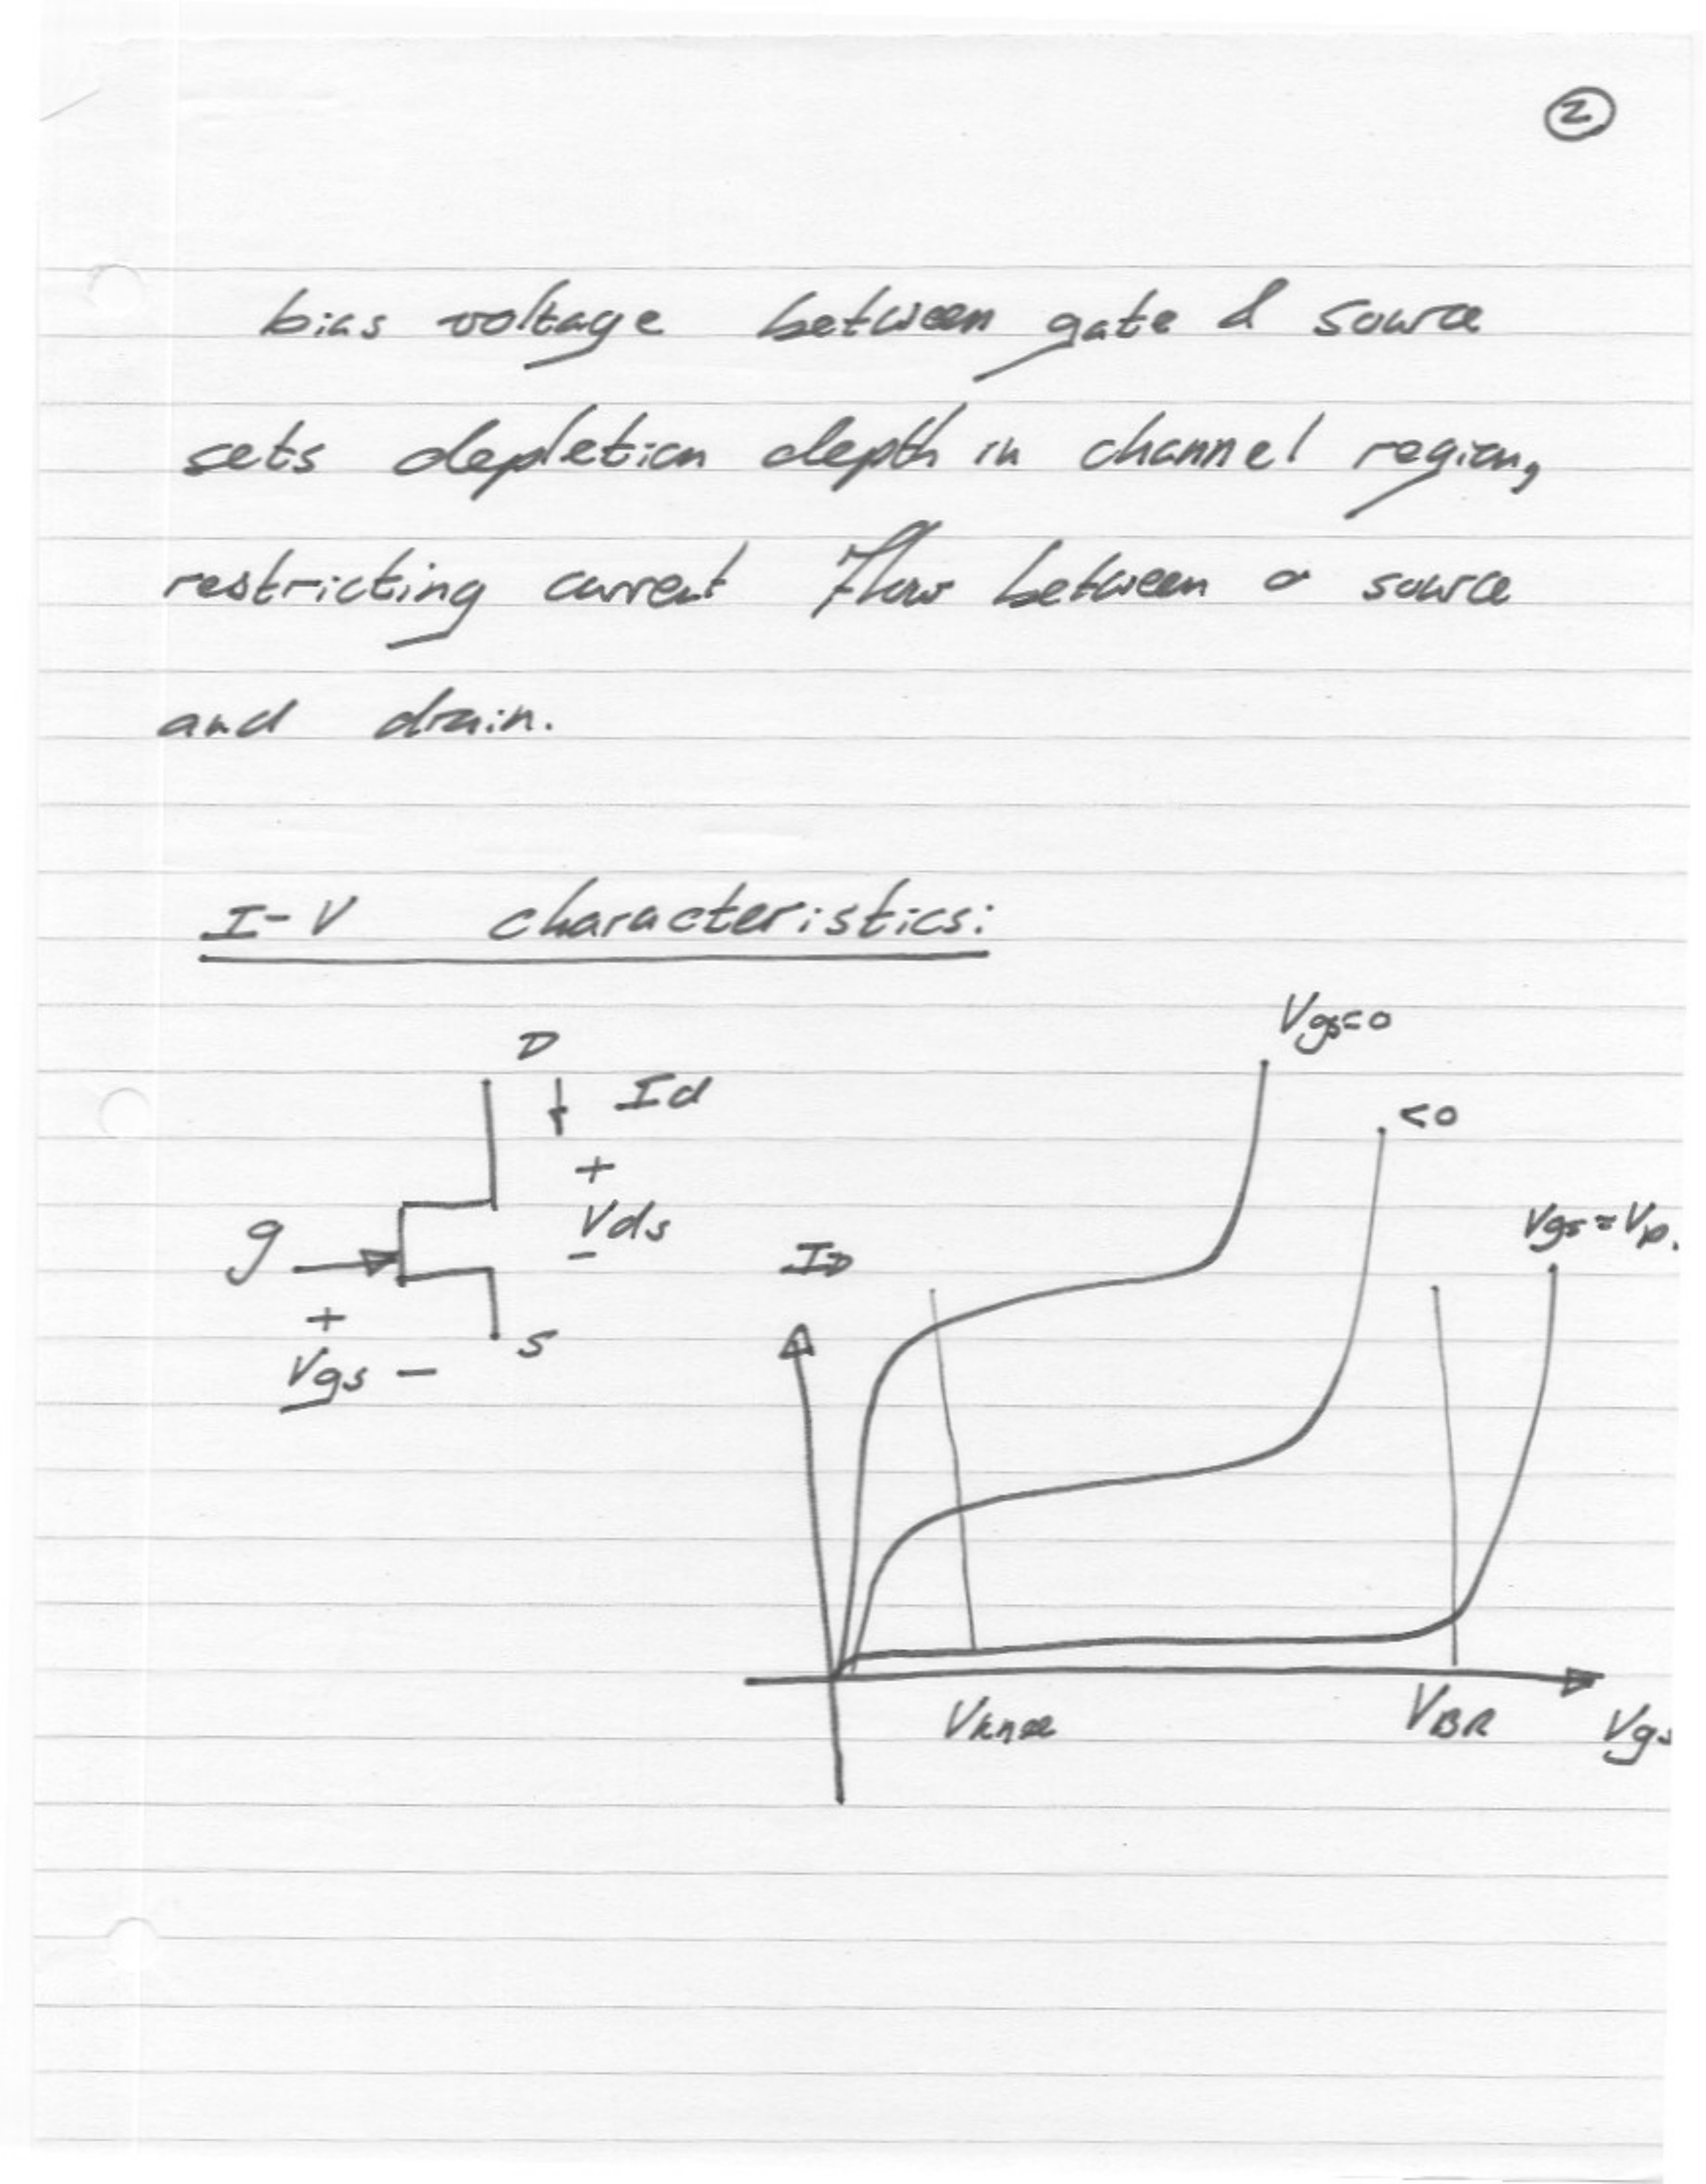 2
bias voltage between gate & source
sets depletion depth in channel region,
restricting current flow between a source
and drain.
I-V characteristics:
D
Id
+
Vds
-
g
+
Vgs -
S
Vgs=0
<0
Vgs=Vp.
ID
Vknee
VBR
Vgs